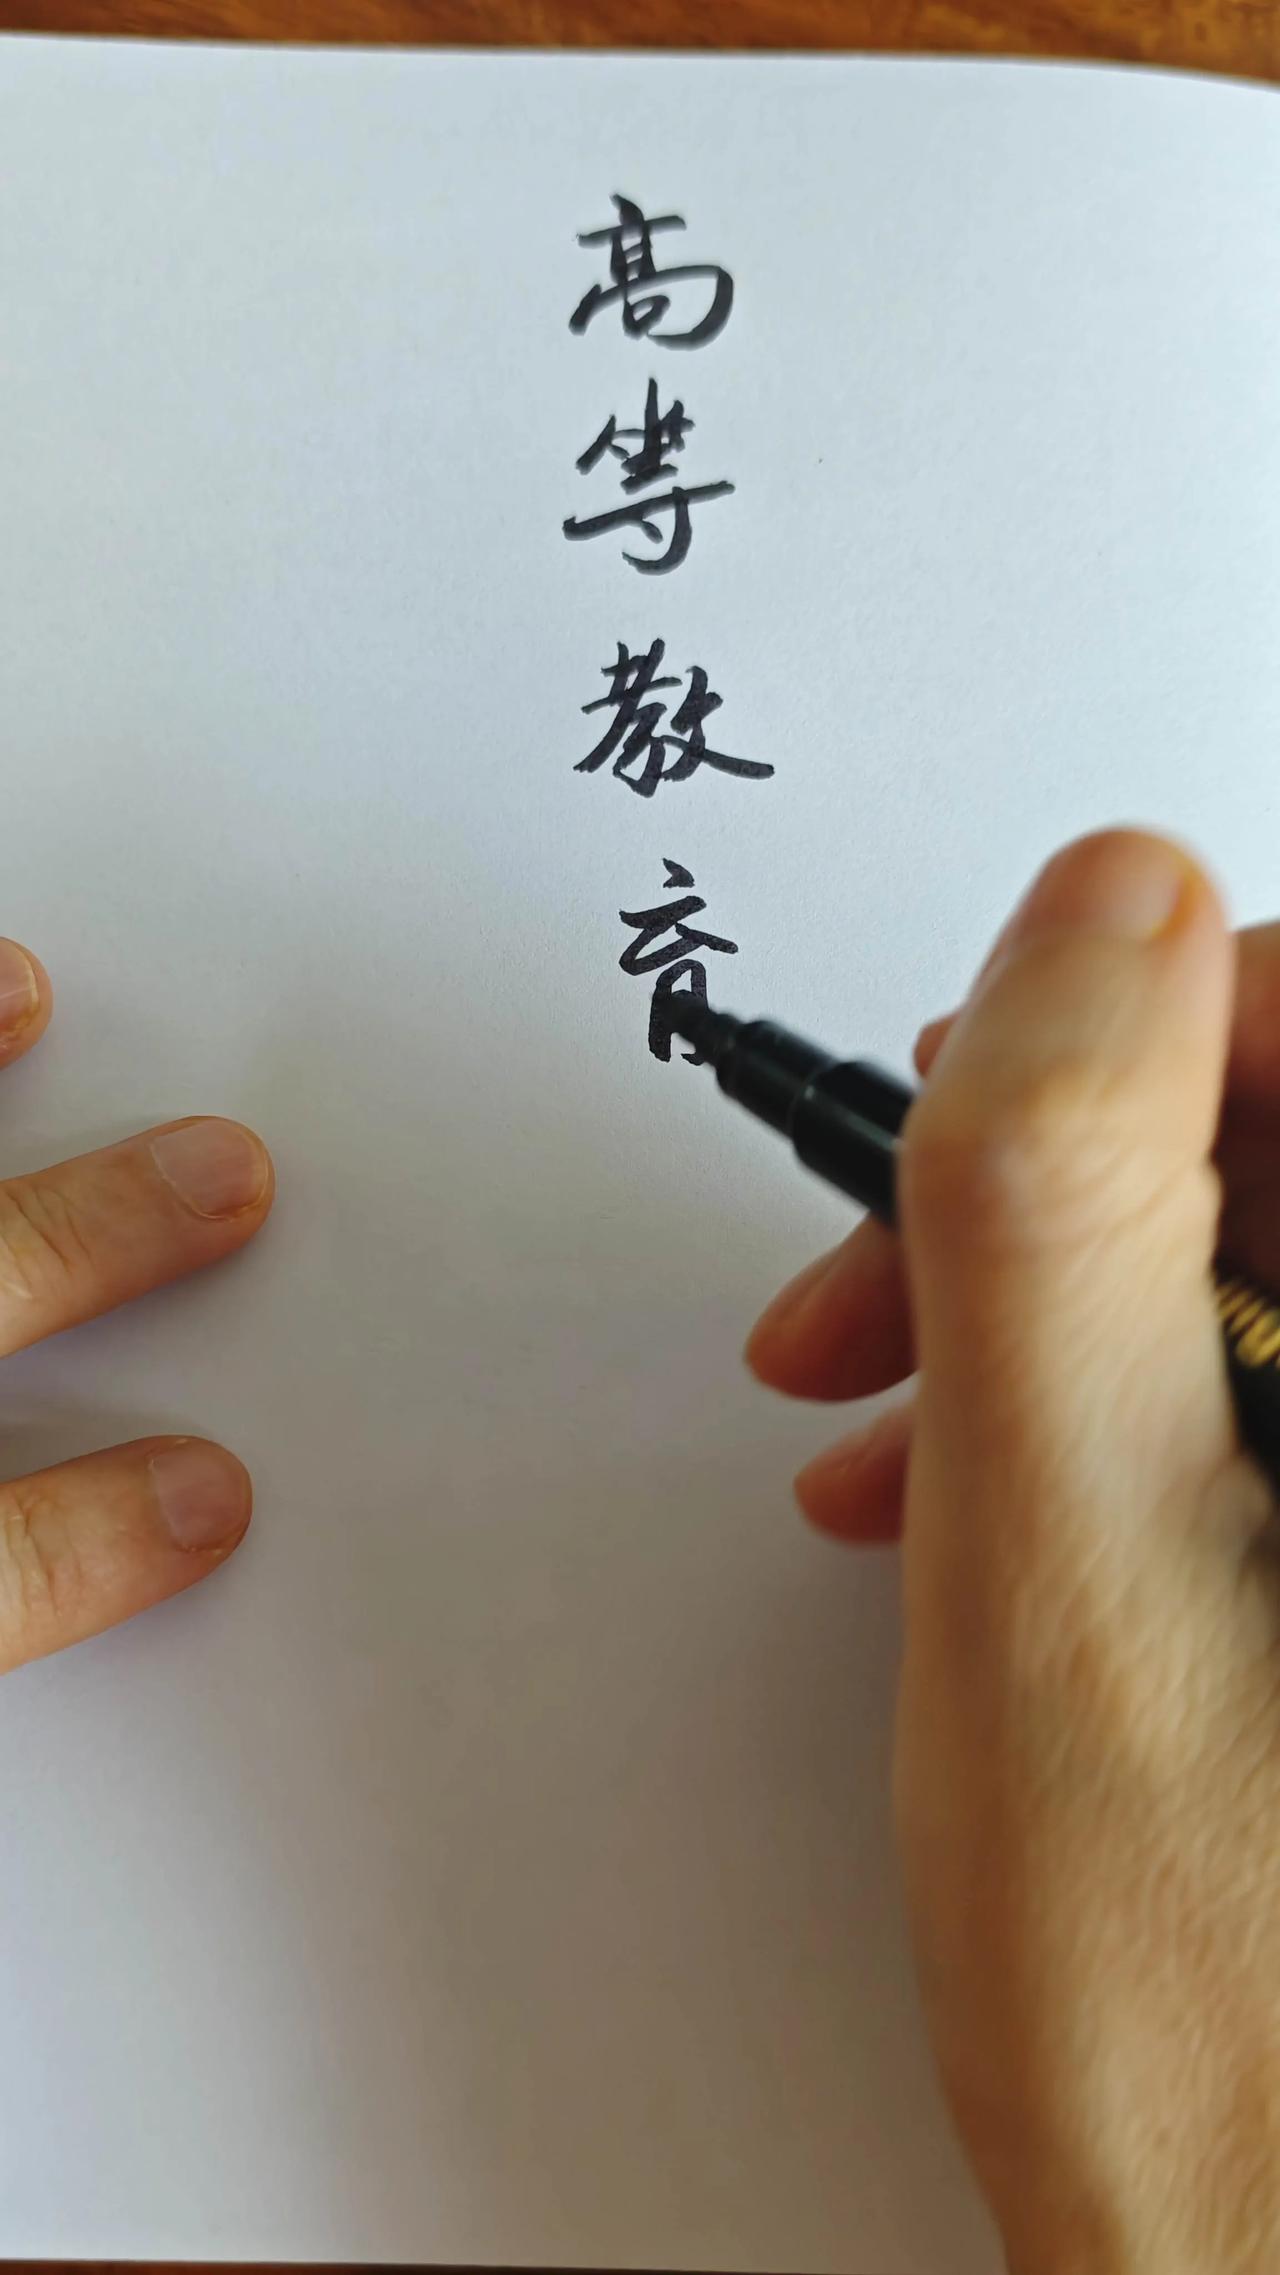 高等教育